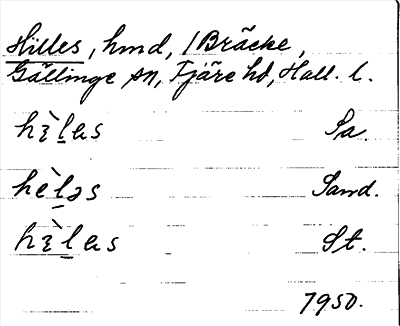 Hilles, hmd, i Bräcke,
Gällinge sn, Fjäre hd, Hall. l.
hɛ̀ḻɐs Sa.
hèḻəs Sand.
hɛ̀ḻɐs St.
1950.